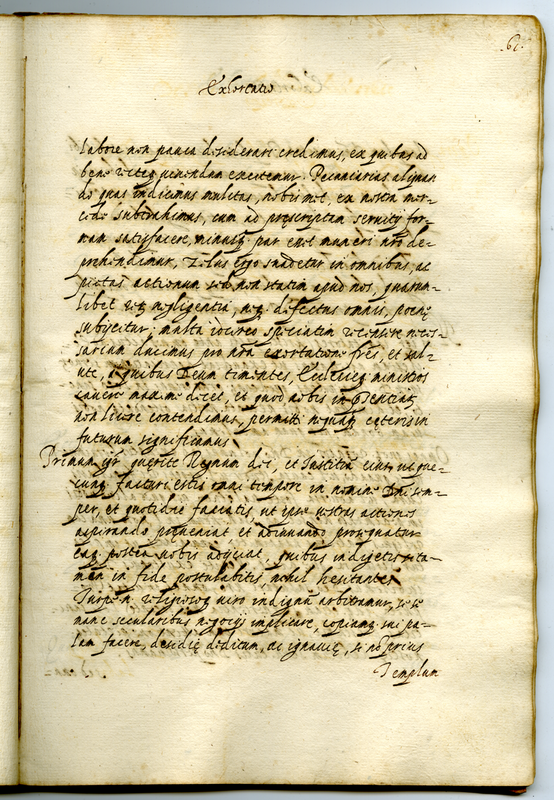 62.
Exhortatio
labore non pauca desiderari credimus, ex quibus ad
bene reteq vivendum excitemur. Pecuniarias aliquan
do quas indicimus mulitas, nobismet, ex nostra mer-
cede subtrahimus, cum ad prescriptam servitij for-
mam satisfacere, minusq par esse muneri nro de-
prehendimur, Zelus ergo suadetur in omnibus, ac
pietas actionum sed non statim apud nos, quarum-
libet neq negligentia, neq defectus omnis, poenę
subijcitur, multa idcirco speciatim recensere neces-
sarium ducimus pro nra exortatione fres, et salu-
te, a quibus Deum timentes, Ecclesieq ministros
cavere maxime decet, et quod nobis in presentiaz
non licere contendimus, permitti nequaq ceteris in
futurum significamus.
Primum igr querite Regnum dei, et Iustitia eius, ut que-
cunq facturi estis omni tempore in nomine Dni sem-
per, et quotidie faciatis, ut ipse vestras actiones
aspirando preveniat et adiuvando prosequatur
eaq postea vobis adijciat, quibus indigetis, ta-
men in fide postulabitis nihil hesitantes
Turpe n. religiosoq viro indignu arbitramur, se se
mane secularibus negocijs implicare, copiamq sui pa-
lam facere, desidię deditum, ac ignavię, si no prius
Templum